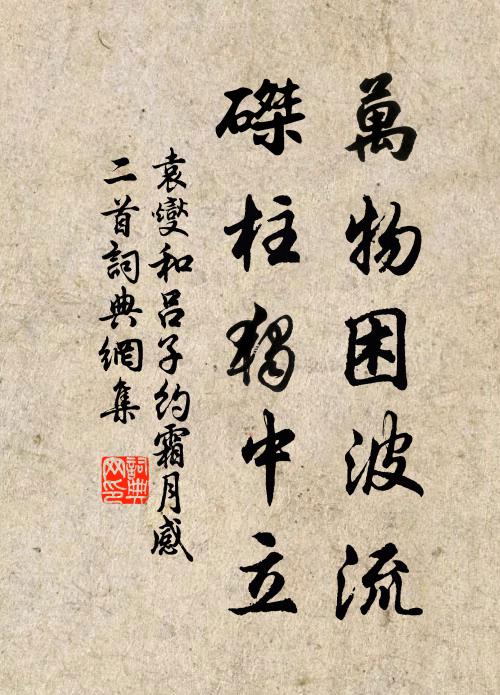 萬物困波流
磔柱獨中立
袁燮和呂子約霜月感
二首詞典網集
詞典
网印